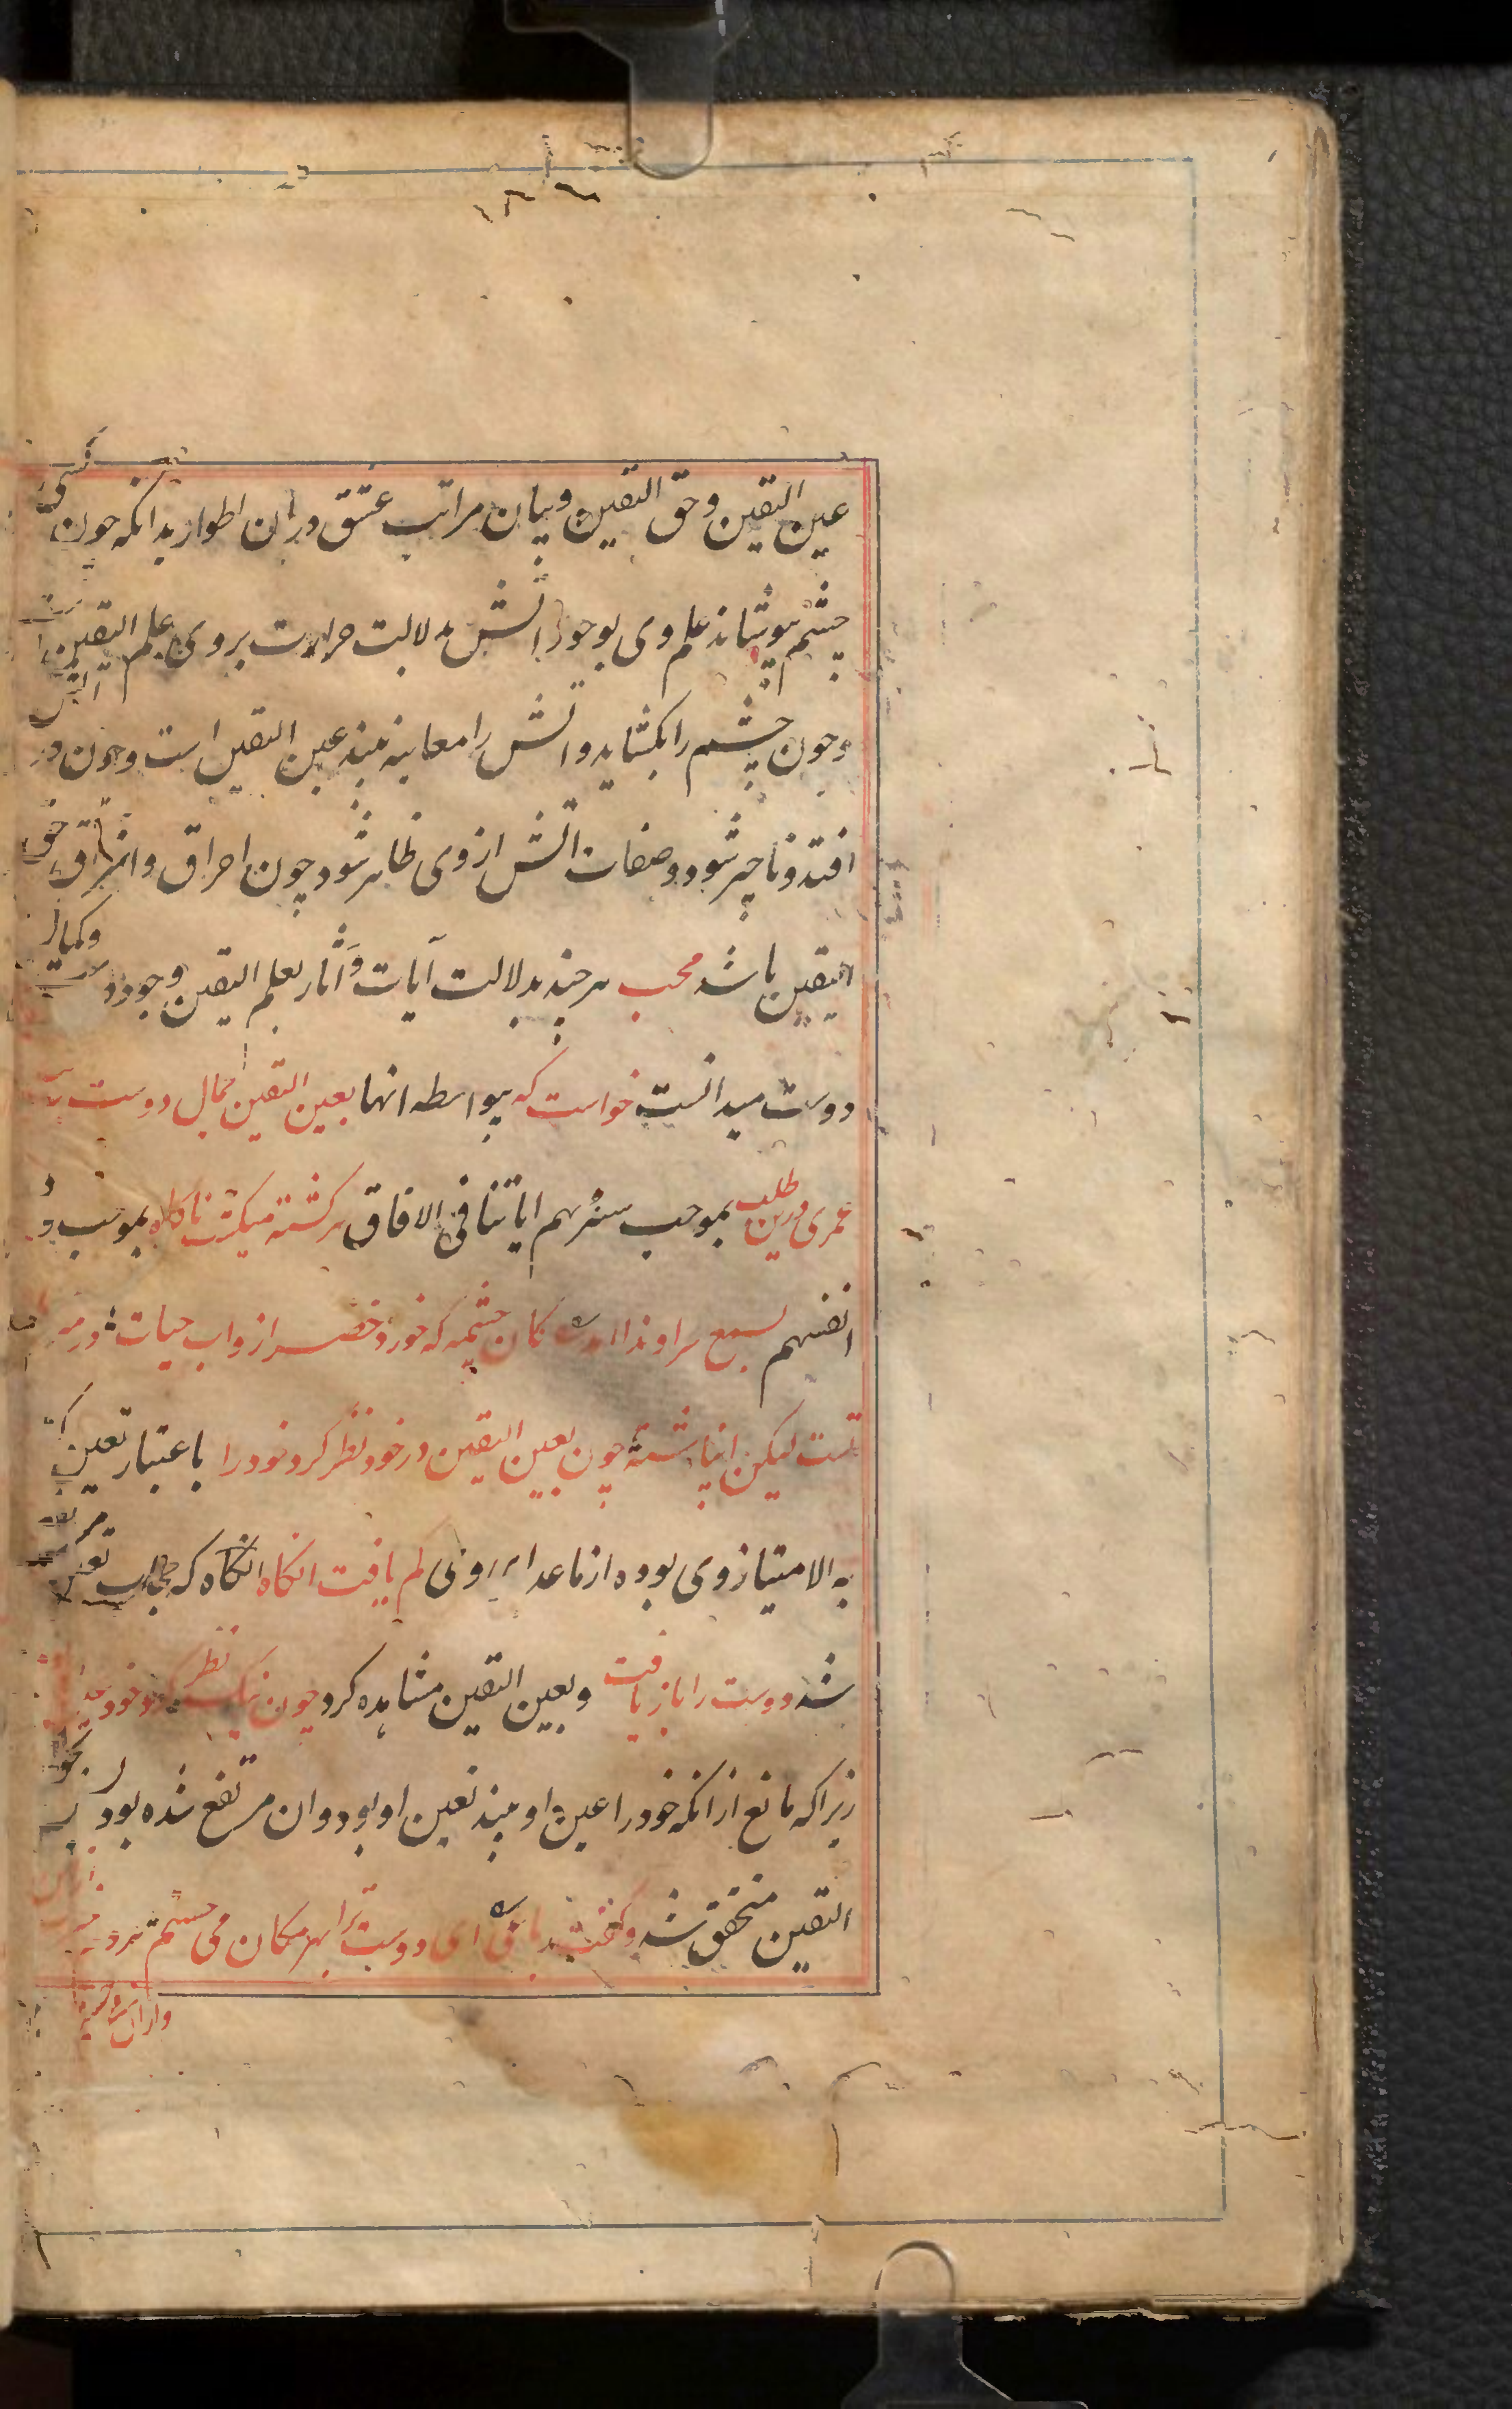 عین الیقین وحق الیقین وبیان مراتب عشق دران اطوار بدانکه چون کسی
چشم بپوشاند علم وی بوجود آتش بدلالت حرارت بروی علم الیقین است
وچون چشم را بگشاید و آتش را معاینه بیند عین الیقین است وچون در آتش
افتد وناچیز شود وصفات آتش ازوی ظاهر شود چون احراق واشراق حق
الیقین باشد محب هر چند بدلالت آیات وآثار بعلم الیقین وجود وکمال
دوست میدانست خواست که بیواسطه انها بعین الیقین جمال دوست
عمری درین طلب بموجب سنریهم ایاتنا فی الافاق سرگشته میگشت ناگاه بموجب و
انفسهم بسمع سر او ندا کان چشمه که خورد خضر ازو اب حیات در
تست لیکن انباشتهٔ چون بعین الیقین در خود نظر کرد خود را باعتبار تعین
به الامتیاز وی بوده از ماعدا گم یافت انگاه انگاه که حجاب تعین مرتفع
شد دوست را بازیافت وبعین الیقین مشاهده کرد چون نیک نظر کرد خود
زیراکه مانع ازانکه خود را عین او بیند تعین او بود وان مرتفع شده بود
الیقین متحقق شد وگفت ای دوست ترا بهر مکان می جستم هر دم